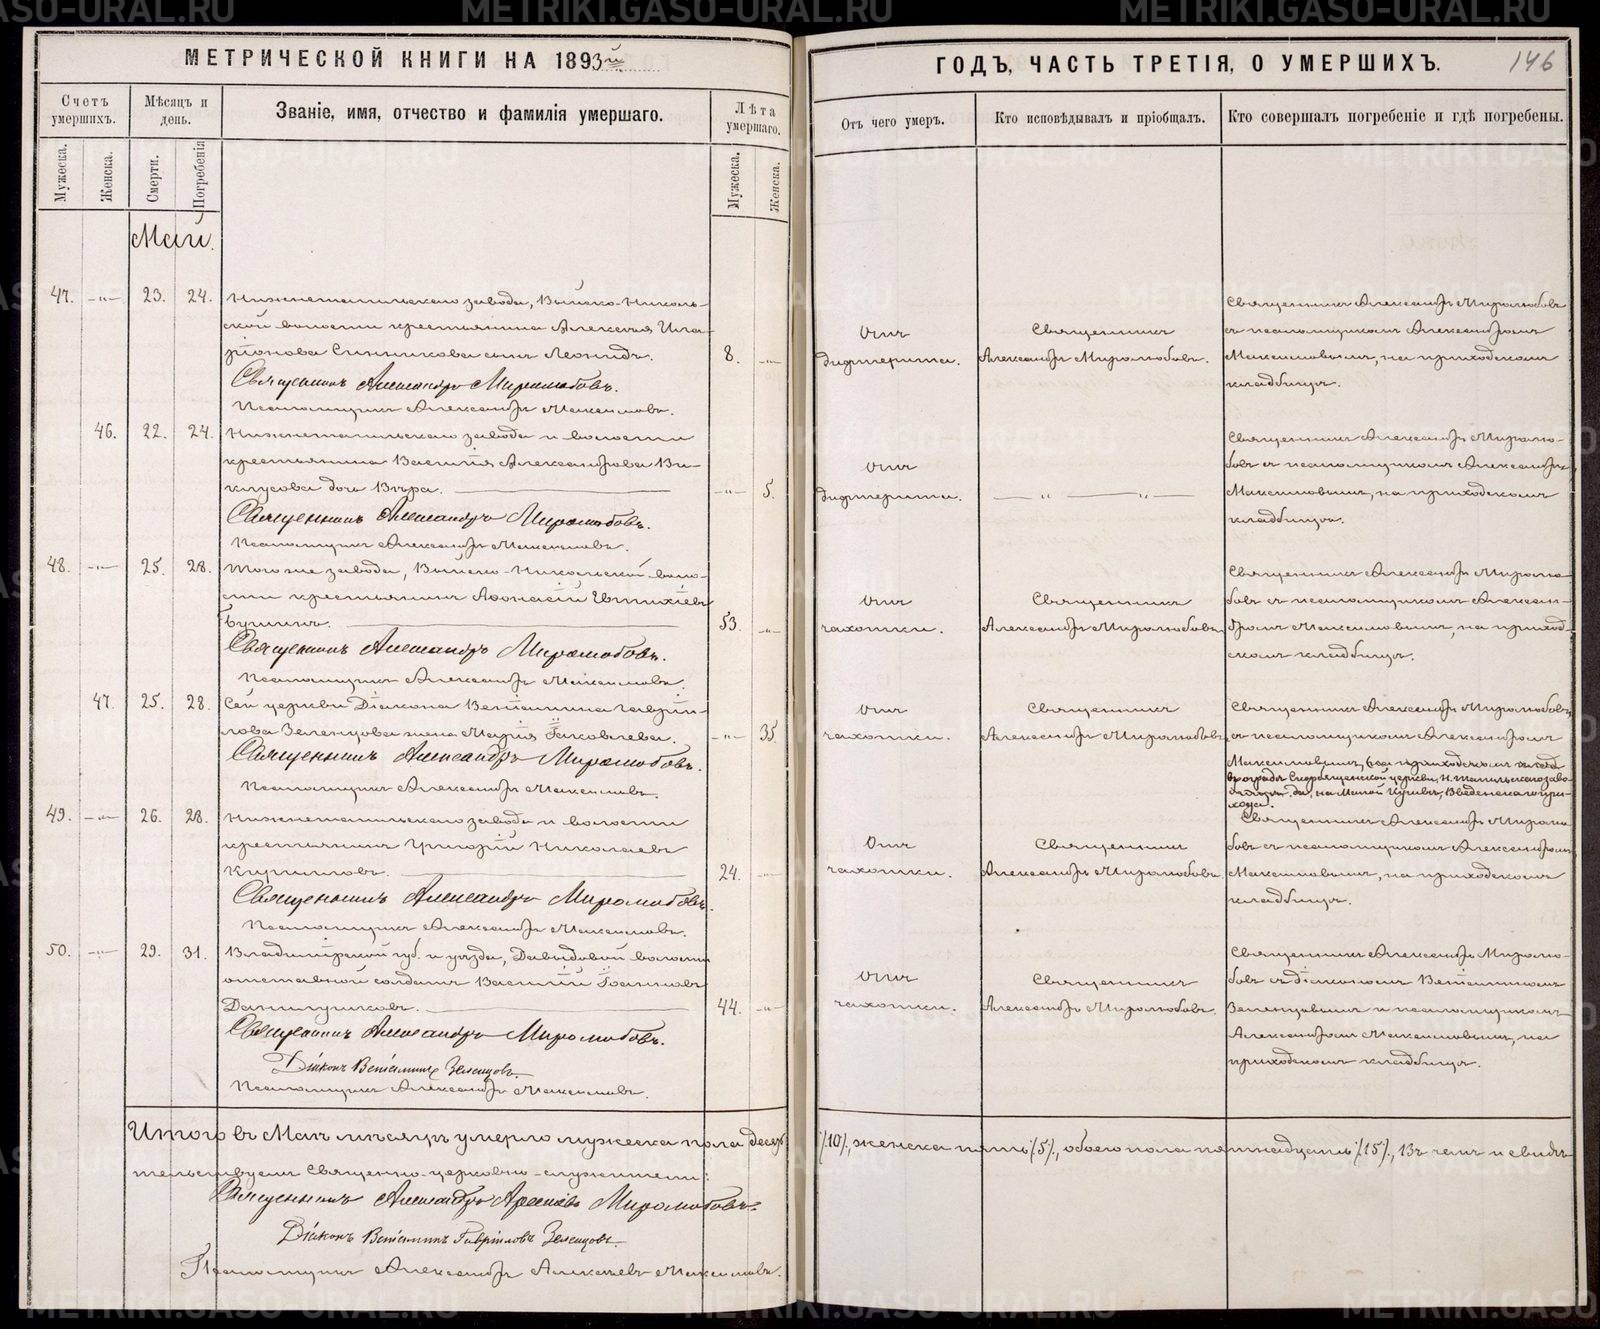 METRIKI.GASO-URAL.RU
МЕТРИЧЕСКОЙ КНИГИ НА 1893й
Счетъ умершихъ.
Мужеска.
Женска.
Мѣсяцъ и день.
Смерти.
Погребенія
Званіе, имя, отчество и фамилія умершаго.
Лѣта умершаго.
Мужеска.
Женска.
ГОДЪ, ЧАСТЬ ТРЕТІЯ, О УМЕРШИХЪ.
146
Отъ чего умеръ.
Кто исповѣдывалъ и пріобщалъ.
Кто совершалъ погребеніе и гдѣ погребены.
Май.
47. -„- 23. 24.
Нижнетагильскаго завода, Выйско-Николь-
ской волости крестьянина Алексѣя Ила-
ріонова Синникова сынъ Леонидъ.
8. -„-
Священникъ Александръ Миролюбовъ.
Псаломщикъ Александръ Максимовъ.
Отъ
дифтерита.
Священникъ
Александръ Миролюбовъ.
Священникъ Александръ Миролюбовъ
съ псаломщикомъ Александромъ
Максимовымъ, на приходскомъ
кладбищѣ.
46. 22. 24.
Нижнетагильскаго завода и волости
крестьянина Василія Александрова
дочь Вѣра.
-„- 5.
Священникъ Александръ Миролюбовъ.
Псаломщикъ Александръ Максимовъ.
Отъ
дифтерита.
-„- -„-
Священникъ Александръ Миролю-
бовъ съ псаломщикомъ Александромъ
Максимовымъ, на приходскомъ
кладбищѣ.
48. -„- 25. 28.
Тогоже завода, Выйско-Никольской воло-
сти крестьянинъ Аѳонасій Евтихіевъ
Бушинъ.
53. -„-
Священникъ Александръ Миролюбовъ.
Псаломщикъ Александръ Максимовъ.
Отъ
чахотки.
Священникъ
Александръ Миролюбовъ.
Священникъ Александръ Миролю-
бовъ съ псаломщикомъ Алексан-
дромъ Максимовымъ, на приход-
скомъ кладбищѣ.
47. 25. 28.
Сей церкви Діакона Веніамина Гаврі-
лова Зеленцова жена Марія Іаковлева.
-„- 35.
Священникъ Александръ Миролюбовъ.
Псаломщикъ Александръ Максимовъ.
Отъ
чахотки.
Священникъ
Александръ Миролюбовъ
Священникъ Александръ Миролюбовъ,
съ псаломщикомъ Александромъ
Максимовымъ,
въ оградѣ Скорбященской церкви, Н.Тагильскаго заво-
да, на Малой Кушвѣ, Введенскаго при-
хода.
49. -„- 26. 28.
Нижнетагильскаго завода и волости
крестьянинъ Григорій Николаевъ
Кирилловъ.
24. -„-
Священникъ Александръ Миролюбовъ.
Псаломщикъ Александръ Максимовъ.
Отъ
чахотки.
Священникъ
Александръ Миролюбовъ
Священникъ Александръ Миролю-
бовъ съ псаломщикомъ Александромъ
Максимовымъ, на приходскомъ
кладбищѣ.
50. -„- 29. 31.
Владимірской губ. и уѣзда, Давыдовой волости
отставной солдатъ Василій Іоанновъ
44. -„-
Священникъ Александръ Миролюбовъ.
Діаконъ Веніаминъ Зеленцовъ.
Псаломщикъ Александръ Максимовъ.
Отъ
чахотки.
Священникъ
Александръ Миролюбовъ.
Священникъ Александръ Миролю-
бовъ съ діакономъ Веніаминомъ
Зеленцовымъ и псаломщикомъ
Александромъ Максимовымъ, на
приходскомъ кладбищѣ.
Итого въ Маѣ мѣсяцѣ умерло мужеска пола десять /:10:/, женска пять /:5:/, обоего пола пятнадцать /:15:/, въ чемъ и свидѣ-
тельствуемъ Священно-церковно-служители:
Священникъ Александръ Миролюбовъ.
Діаконъ Веніаминъ Гавріиловъ Зеленцовъ.
Псаломщикъ Александръ Алексѣевъ Максимовъ.